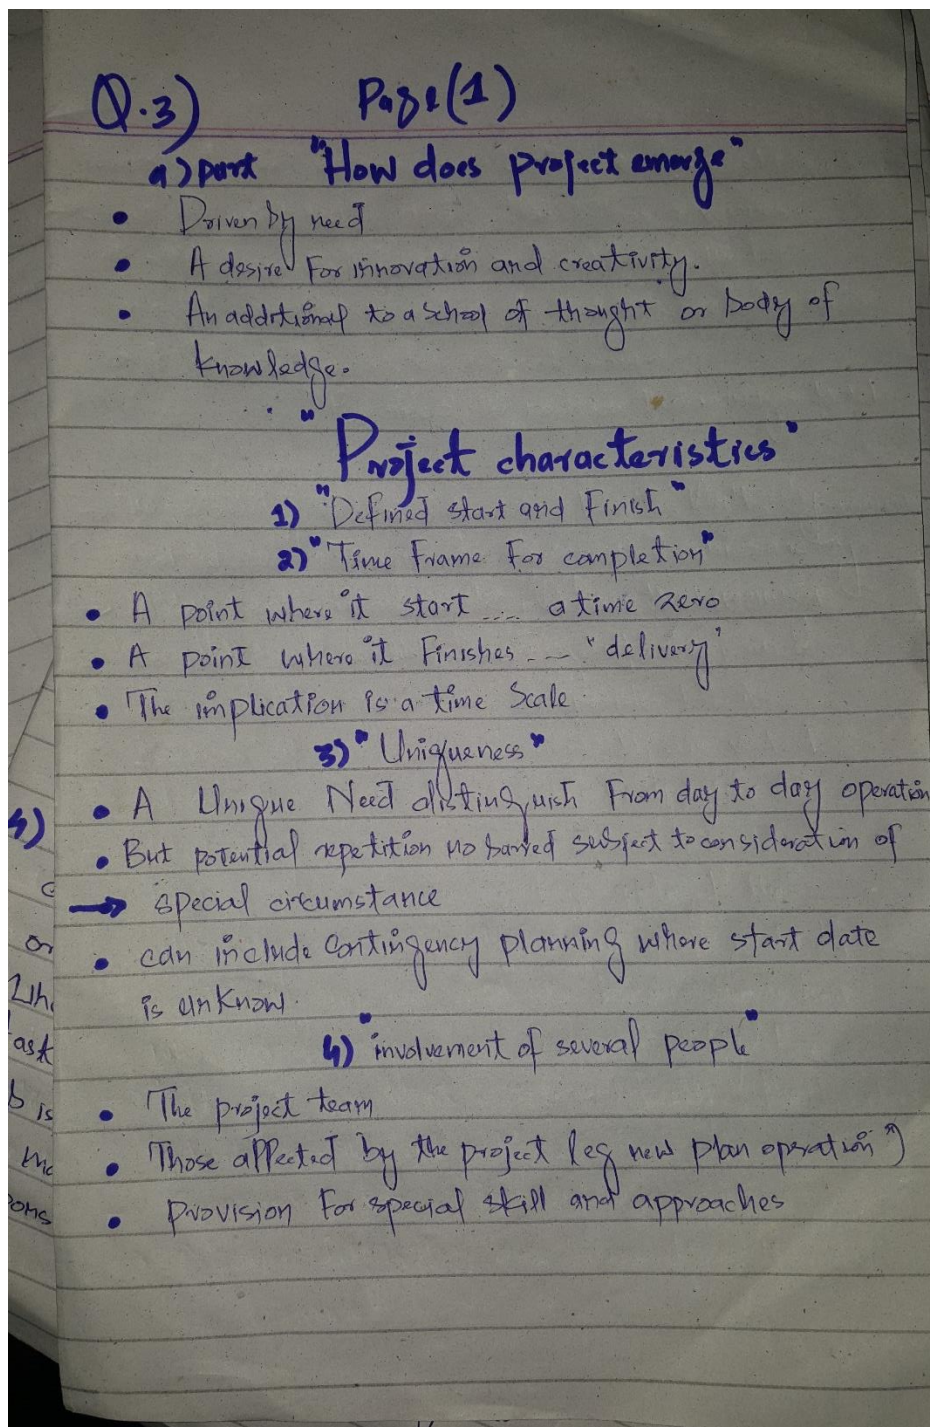 Q.3) Page(1)
a) part "How does project emerge"
• Driven by need
• A desire For innovation and creativity.
• An additional to a school of thought or body of
knowledge.
"Project characteristics"
1) "Defined start and Finish"
2) "Time Frame For completion"
• A point where it start .... a time zero
• A point where it Finishes - - "delivery"
• The implication is a time Scale
3) "Uniqueness"
• A Unique Need distinguish From day to day operation
• But potential repetition no barred subject to consideration of
→ special circumstance
• can include Contingency planning where start date
is unknow.
4) "involvement of several people"
• The project team
• Those affected by the project (eg new plan operation")
• Provision For special skill and approaches
4)
c
or
ask
b is